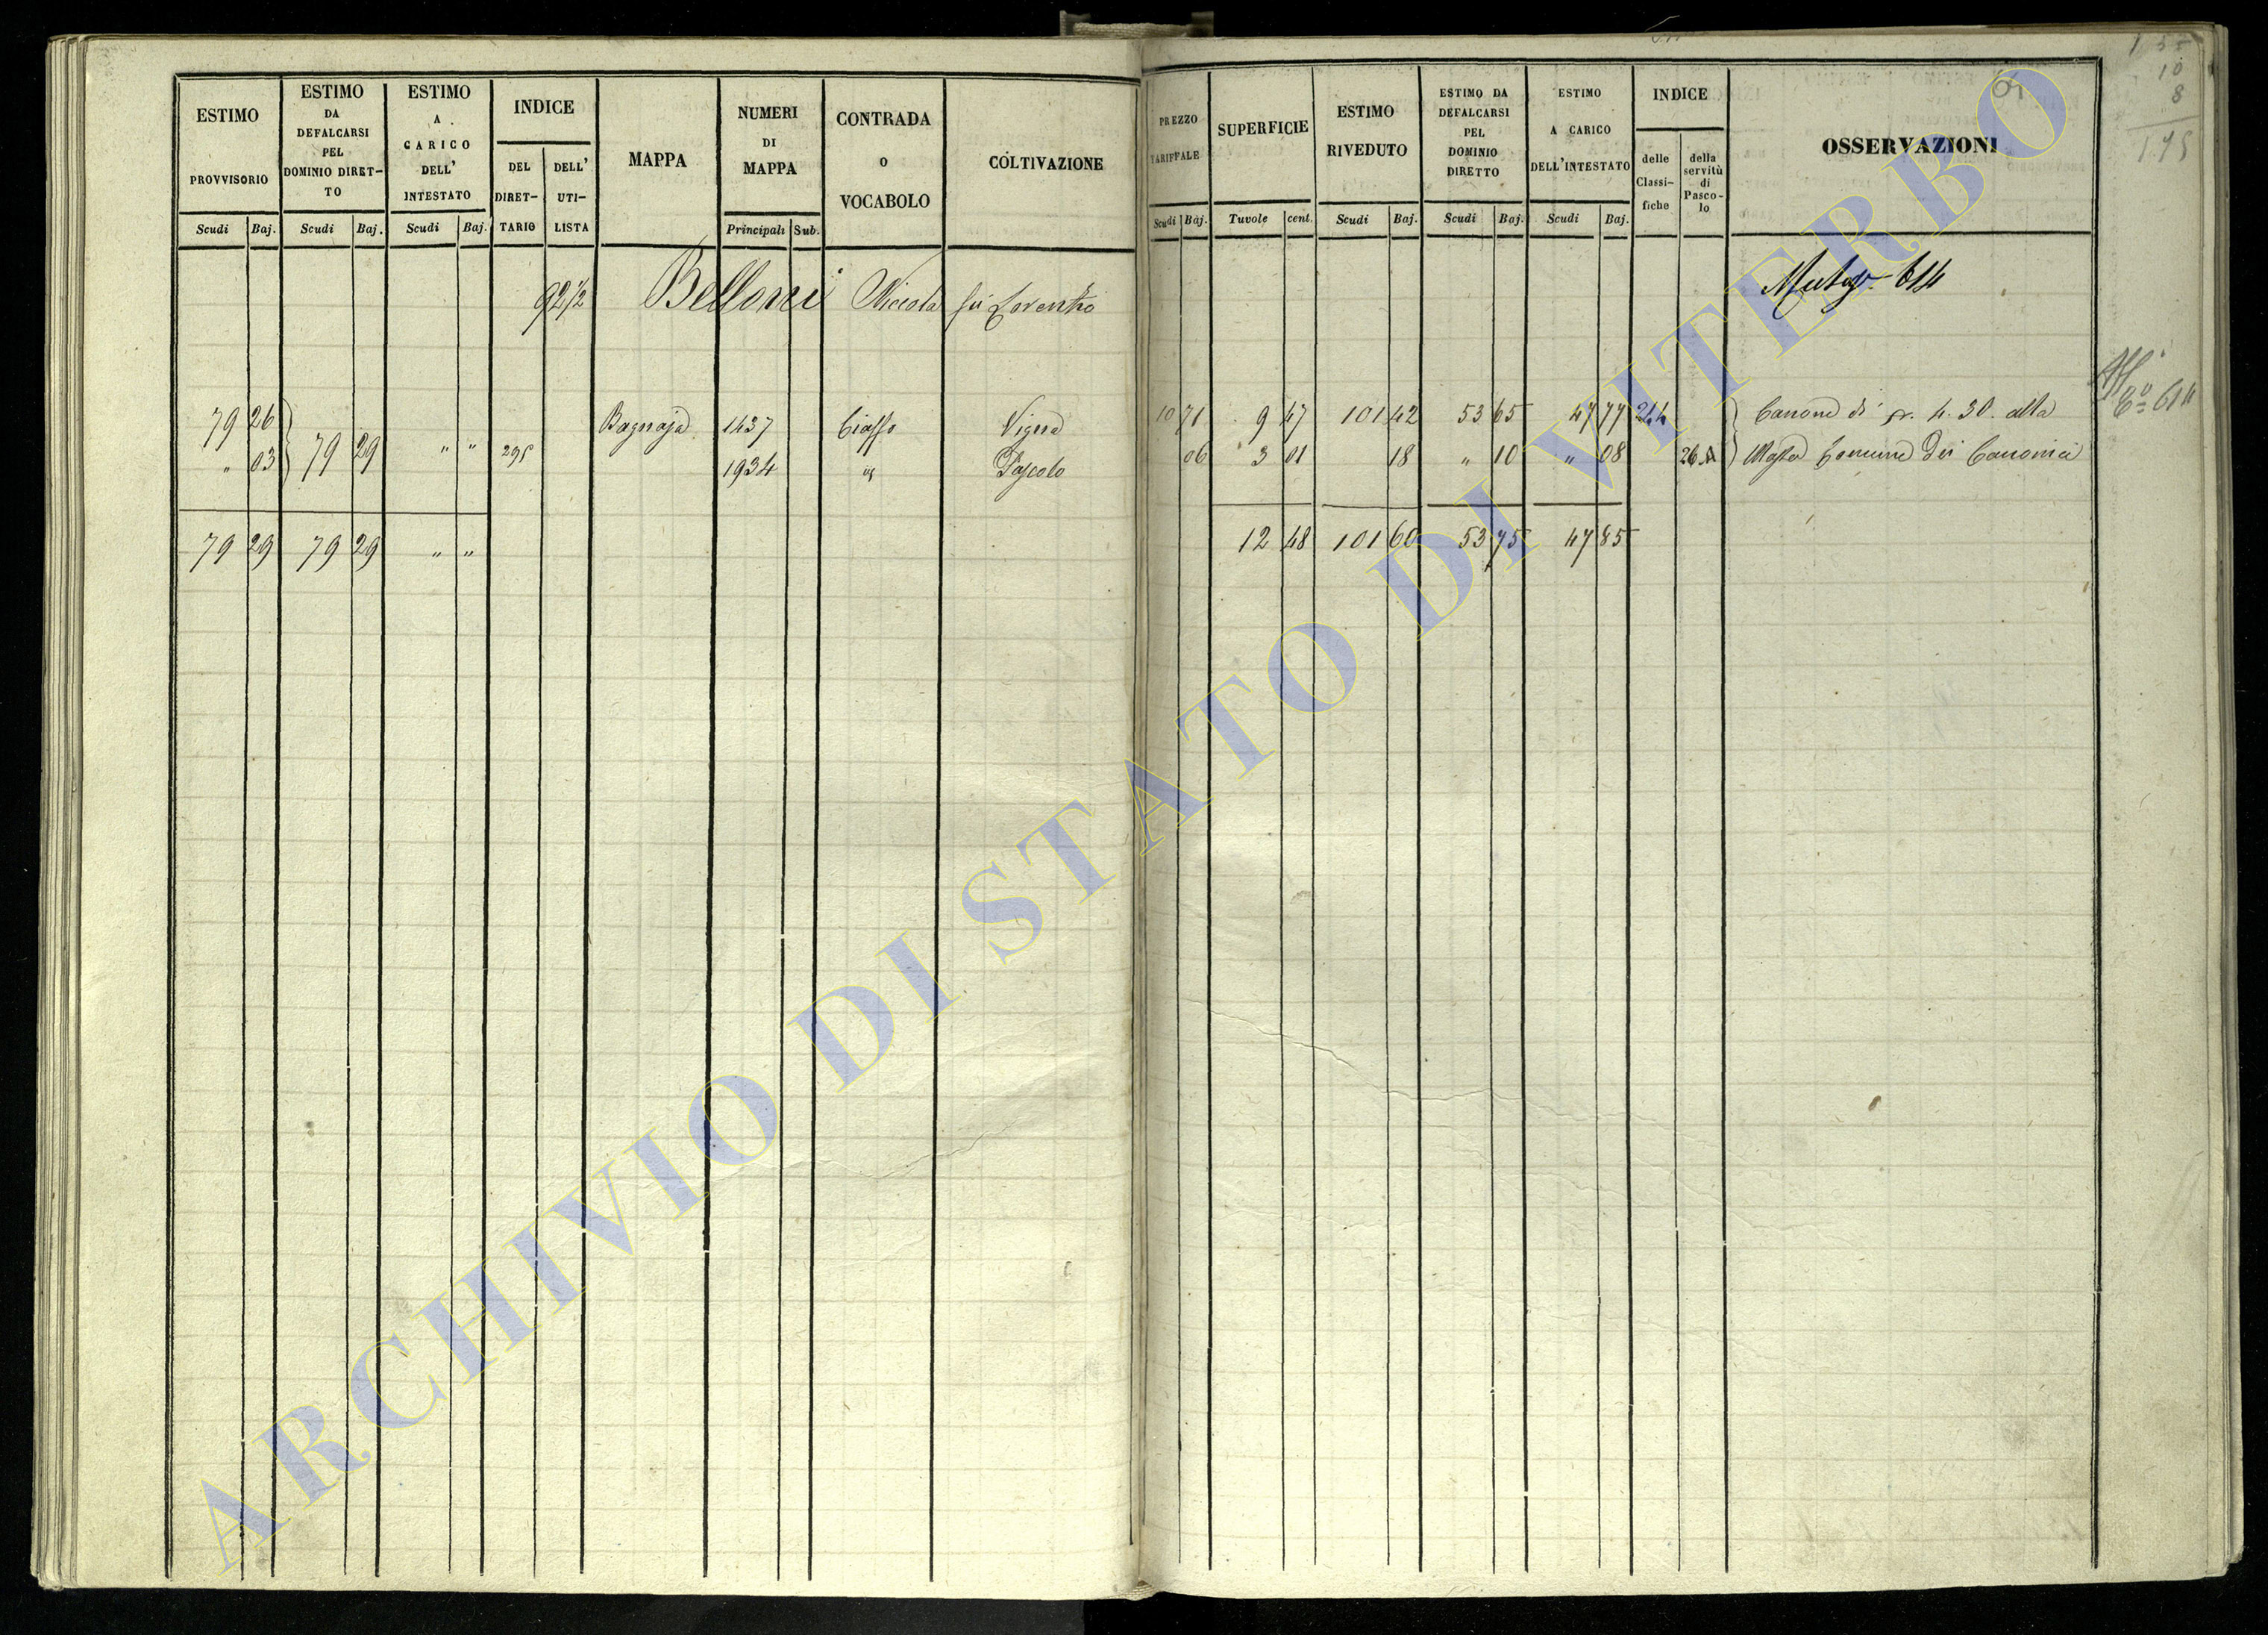 ESTIMO PROVVISORIO
Scudi Baj.
ESTIMO DA DEFALCARSI PEL DOMINIO DIRET-TO
Scudi Baj.
ESTIMO A CARICO DELL' INTESTATO
Scudi Baj.
INDICE
DEL DIRET-TARIO
DELL' UTI-LISTA
MAPPA
NUMERI DI MAPPA
Principali Sub.
CONTRADA O VOCABOLO
COLTIVAZIONE
PREZZO TARIFFALE
Scudi Baj.
SUPERFICIE
Tavole cent.
ESTIMO RIVEDUTO
Scudi Baj.
ESTIMO DA DEFALCARSI PEL DOMINIO DIRETTO
Scudi Baj.
ESTIMO A CARICO DELL'INTESTATO
Scudi Baj.
INDICE
delle Classi-fiche
della servitù di Pasco-lo
OSSERVAZIONI
92 1/2 Belloni Niccola fu Lorenzo
614
79 26 Bagnaja 1437 Vigna 10 71 9 47 101 42 53 65 47 77 214 Canone di 4. 30. alla
" 03 79 29 " " 295 1934 " Pascolo 06 3 01 18 " 10 " 08 26 A Massa Comune dei Canonici
79 29 79 29 " " 12 48 101 60 53 75 47 85
614
10
8
ARCHIVIO DI STATO DI VITERBO